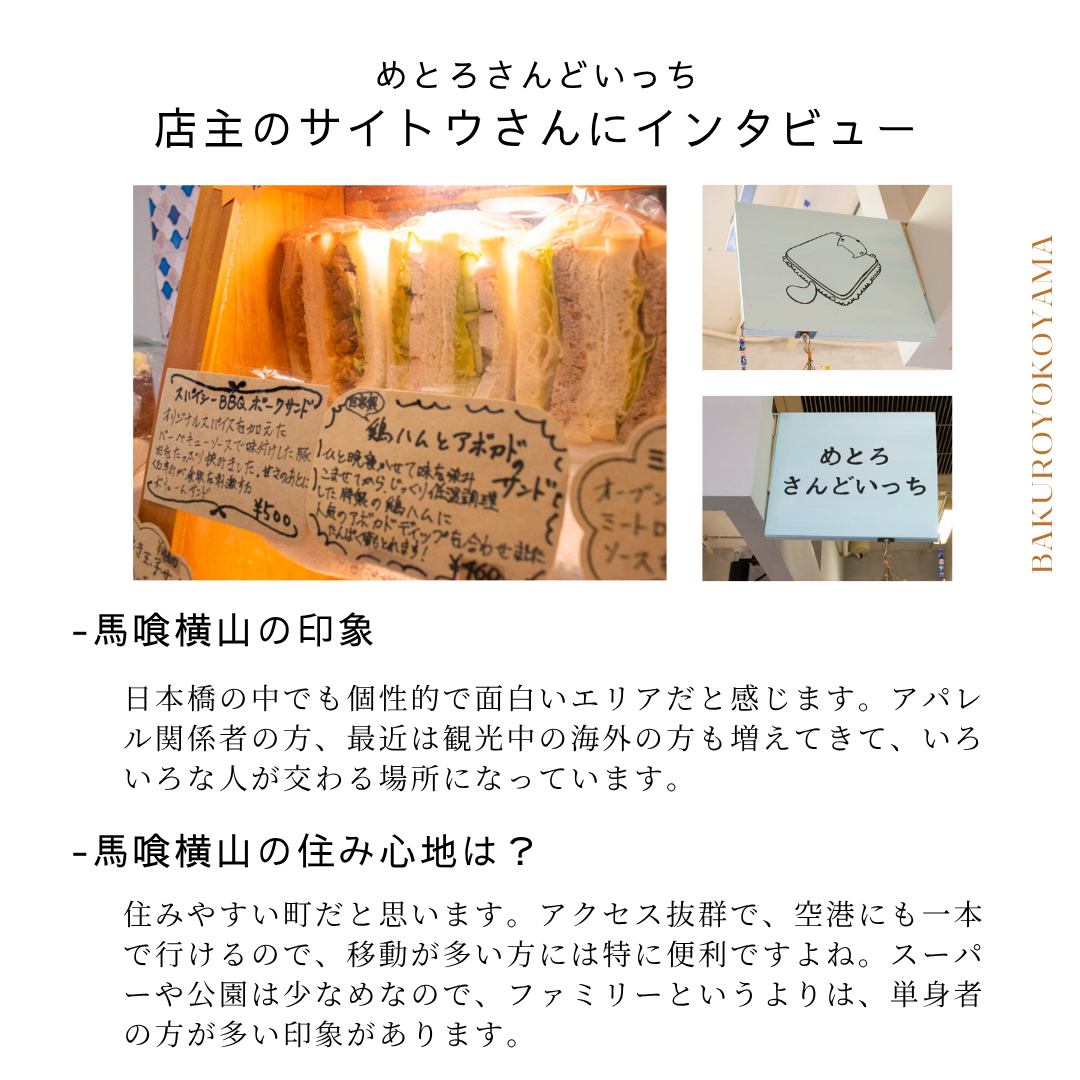 めとろさんどいっち
店主のサイトウさんにインタビュー
スパイシーBBQポークサンド
オリジナルスパイスを加えた
バーベキューソースで味付けした豚
肉をたっぷり挟みました。甘さのあとに
食欲を刺激する
ボリュームサンド
¥500
自家製
鶏ハムとアボカドのサンド
ひと晩寝かせて味を染み
こませてからじっくり低温調理
した特製の鶏ハムに
人気のアボカドディップを合わせました
たんぱく質もとれます!
¥460
オーブン
ミートロ
ソース
めとろ
さんどいっち
BAKUROYOKOYAMA
-馬喰横山の印象
日本橋の中でも個性的で面白いエリアだと感じます。アパレ
ル関係者の方、最近は観光中の海外の方も増えてきて、いろ
いろな人が交わる場所になっています。
-馬喰横山の住み心地は？
住みやすい町だと思います。アクセス抜群で、空港にも一本
で行けるので、移動が多い方には特に便利ですよね。スーパ
ーや公園は少なめなので、ファミリーというよりは、単身者
の方が多い印象があります。